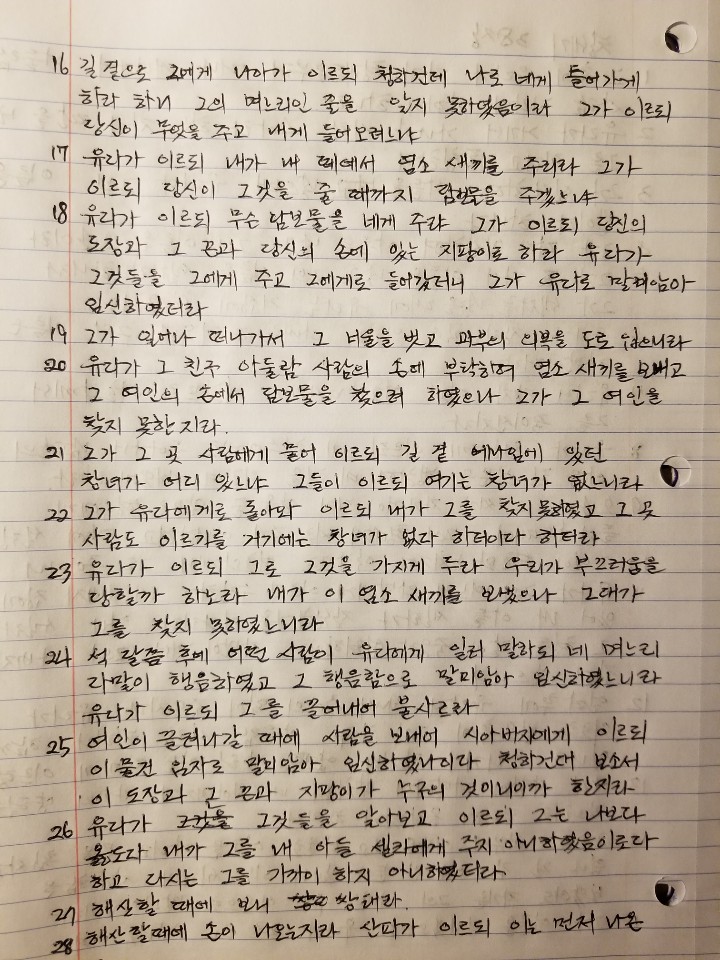 16 길 곁으로 그에게 나아가 이르되 청하건데 나로 네게 들어가게
하라 하니 그의 며느리인 줄을 알지 못하였음이라 그가 이르되
당신이 무엇을 주고 내게 들어오려느냐
17 유다가 이르되 내가 내 떼에서 염소 새끼를 주리라 그가
이르되 당신이 그것을 줄 때까지 담보물을 주겠느냐
18 유다가 이르되 무슨 담보물을 네게 주랴 그가 이르되 당신의
도장과 그 끈과 당신의 손에 있는 지팡이로 하라 유다가
그것들을 그에게 주고 그에게로 들어갔더니 그가 유다로 말미암아
임신하였더라
19 그가 일어나 떠나가서 그 너울을 벗고 과부의 의복을 도로 입으니라
20 유다가 그 친구 아둘람 사람의 손에 부탁하여 염소 새끼를 보내고
그 여인의 손에서 담보물을 찾으려 하였으나 그가 그 여인을
찾지 못한지라.
21 그가 그 곳 사람에게 물어 이르되 길 곁 에나임에 있던
창녀가 어디 있느냐 그들이 이르되 여기는 창녀가 없느니라
22 그가 유다에게로 돌아와 이르되 내가 그를 찾지못하였고 그 곳
사람도 이르기를 거기에는 창녀가 없다 하더이다 하더라
23 유다가 이르되 그로 그것을 가지게 두라 우리가 부끄러움을
당할까 하노라 내가 이 염소 새끼를 보냈으나 그대가
그를 찾지 못하였느니라
24 석 달쯤 후에 어떤 사람이 유다에게 일러 말하되 네 며느리
다말이 행음하였고 그 행음함으로 말미암아 임신하였느니라
유다가 이르되 그를 끌어내어 불사르라
25 여인이 끌려나갈 때에 사람을 보내어 시아버지에게 이르되
이 물건 임자로 말미암아 임신하였나이다 청하건대 보소서
이 도장과 그 끈과 지팡이가 누구의 것이니이까 한지라
26 유다가 그것들을 알아보고 이르되 그는 나보다
옳도다 내가 그를 내 아들 셀라에게 주지 아니하였음이로다
하고 다시는 그를 가까이 하지 아니하였더라
27 해산할 때에 보니 쌍태라.
28 해산할때에 손이 나오는지라 산파가 이르되 이는 먼저 나온